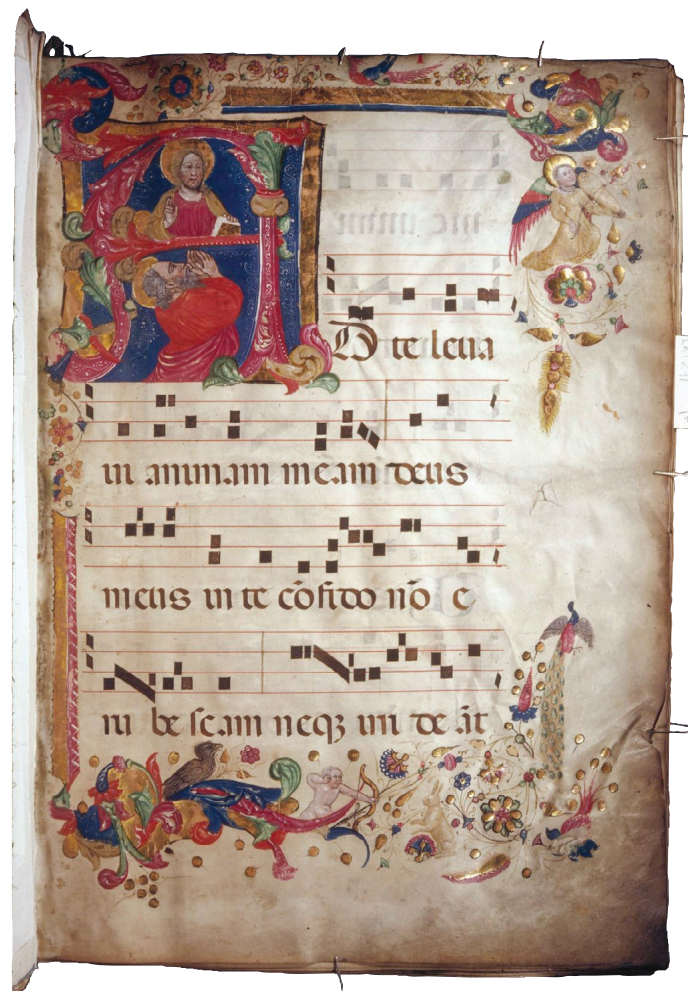 AD te leua
ui animam meam deus
meus in te cōfido nō e
ru be scam neqꝫ irri de āt